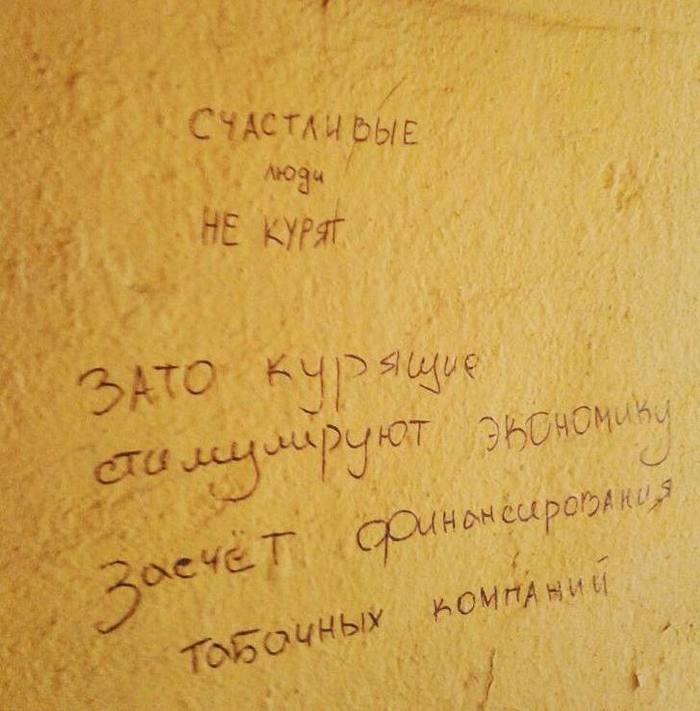 СЧАСТЛИВЫЕ
люди
НЕ КУРЯТ
ЗАТО курящие
стимулируют экономику
Засчёт финансирования
табачных компаний